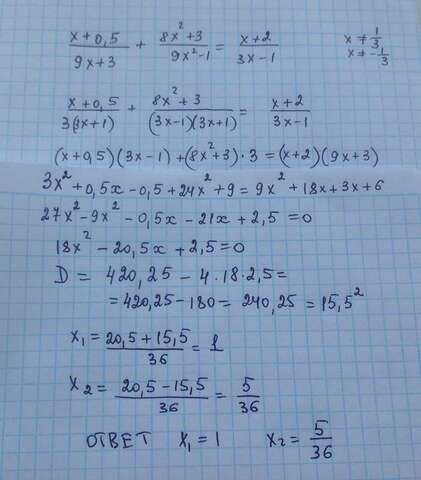 (x+0,5)/(9x+3) + (8x²+3)/(9x²-1) = (x+2)/(3x-1)   x≠1/3
x≠-1/3
(x+0,5)/(3(3x+1)) + (8x²+3)/((3x-1)(3x+1)) = (x+2)/(3x-1)
(x+0,5)(3x-1)+(8x²+3)·3=(x+2)(9x+3)
3x²+0,5x-0,5+24x²+9=9x²+18x+3x+6
27x²-9x²-0,5x-21x+2,5=0
18x²-20,5x+2,5=0
D=420,25-4·18·2,5=
=420,25-180=240,25=15,5²
x₁=(20,5+15,5)/36=1
x₂=(20,5-15,5)/36=5/36
ОТВЕТ x₁=1 x₂=5/36